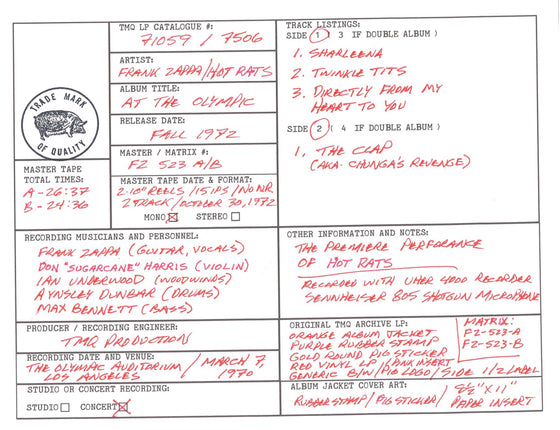 TMQ LP CATALOGUE #:
71059 / 7506
ARTIST:
FRANK ZAPPA/HOT RATS
ALBUM TITLE:
AT THE OLYMPIC
RELEASE DATE:
FALL 1972
MASTER / MATRIX #:
FZ 523 A/B
MASTER TAPE DATE & FORMAT:
2-10" REELS / 15 IPS / NO NR
2 TRACK / OCTOBER 30, 1972
MONO STEREO
TRADE MARK
OF QUALITY
MASTER TAPE
TOTAL TIMES:
A - 26:37
B - 24:36
TRACK LISTINGS:
SIDE 1 ( 3 IF DOUBLE ALBUM )
1. SHARLEENA
2. TWINKLE TITS
3. DIRECTLY FROM MY
HEART TO YOU
SIDE 2 ( 4 IF DOUBLE ALBUM )
1. THE CLAP
(AKA. CHUNGA'S REVENGE)
RECORDING MUSICIANS AND PERSONNEL:
FRANK ZAPPA (GUITAR, VOCALS)
DON "SUGARCANE" HARRIS (VIOLIN)
IAN UNDERWOOD (WOODWINDS)
AYNSLEY DUNBAR (DRUMS)
MAX BENNETT (BASS)
OTHER INFORMATION AND NOTES:
THE PREMIERE PERFORANCE
OF HOT RATS
RECORDED WITH UHER 4000 RECORDER
SENNHEISER 805 SHOTGUN MICROPHONE
PRODUCER / RECORDING ENGINEER:
TMQ PRODUCTION
RECORDING DATE AND VENUE:
THE OLYMPIC AUDITORIUM / MARCH 7,
LOS ANGELES 1970
STUDIO OR CONCERT RECORDING:
STUDIO CONCERT
ORIGINAL TMQ ARCHIVE LP:
ORANGE ALBUM JACKET
PURPLE RUBBER STAMP
GOLD ROUND PIG STICKER
RED VINYL LP / PINK INSERT
GENERIC B/W/PIG LOGO/SIDE 1/2 LABEL
MATRIX:
FZ-523-A
FZ-523-B
ALBUM JACKET COVER ART:
RUBBER STAMP / PIG STICKER / 8½" X 11"
PAPER INSERT